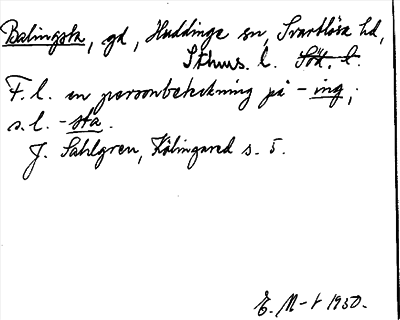 Balingsta, gd, Huddinge sn, Svartlösa hd,
Sthms. l. Söt. l.
F. l. en personbeteckning på -ing,
s. l. -sta.
J. Sahlgren, Kålingared s. 5.
E. M-t 1930.